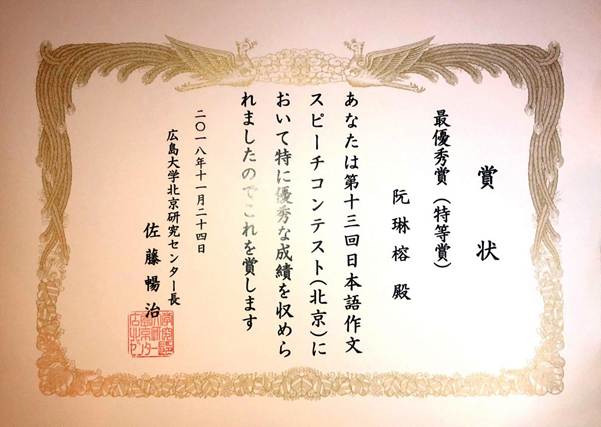 賞状
最優秀賞（特等賞）
阮琳榕 殿
あなたは第十三回日本語作文
スピーチコンテスト（北京）に
おいて特に優秀な成績を収めら
れましたのでこれを賞します
二〇一八年十一月二十四日
広島大学北京研究センター長
佐藤暢治